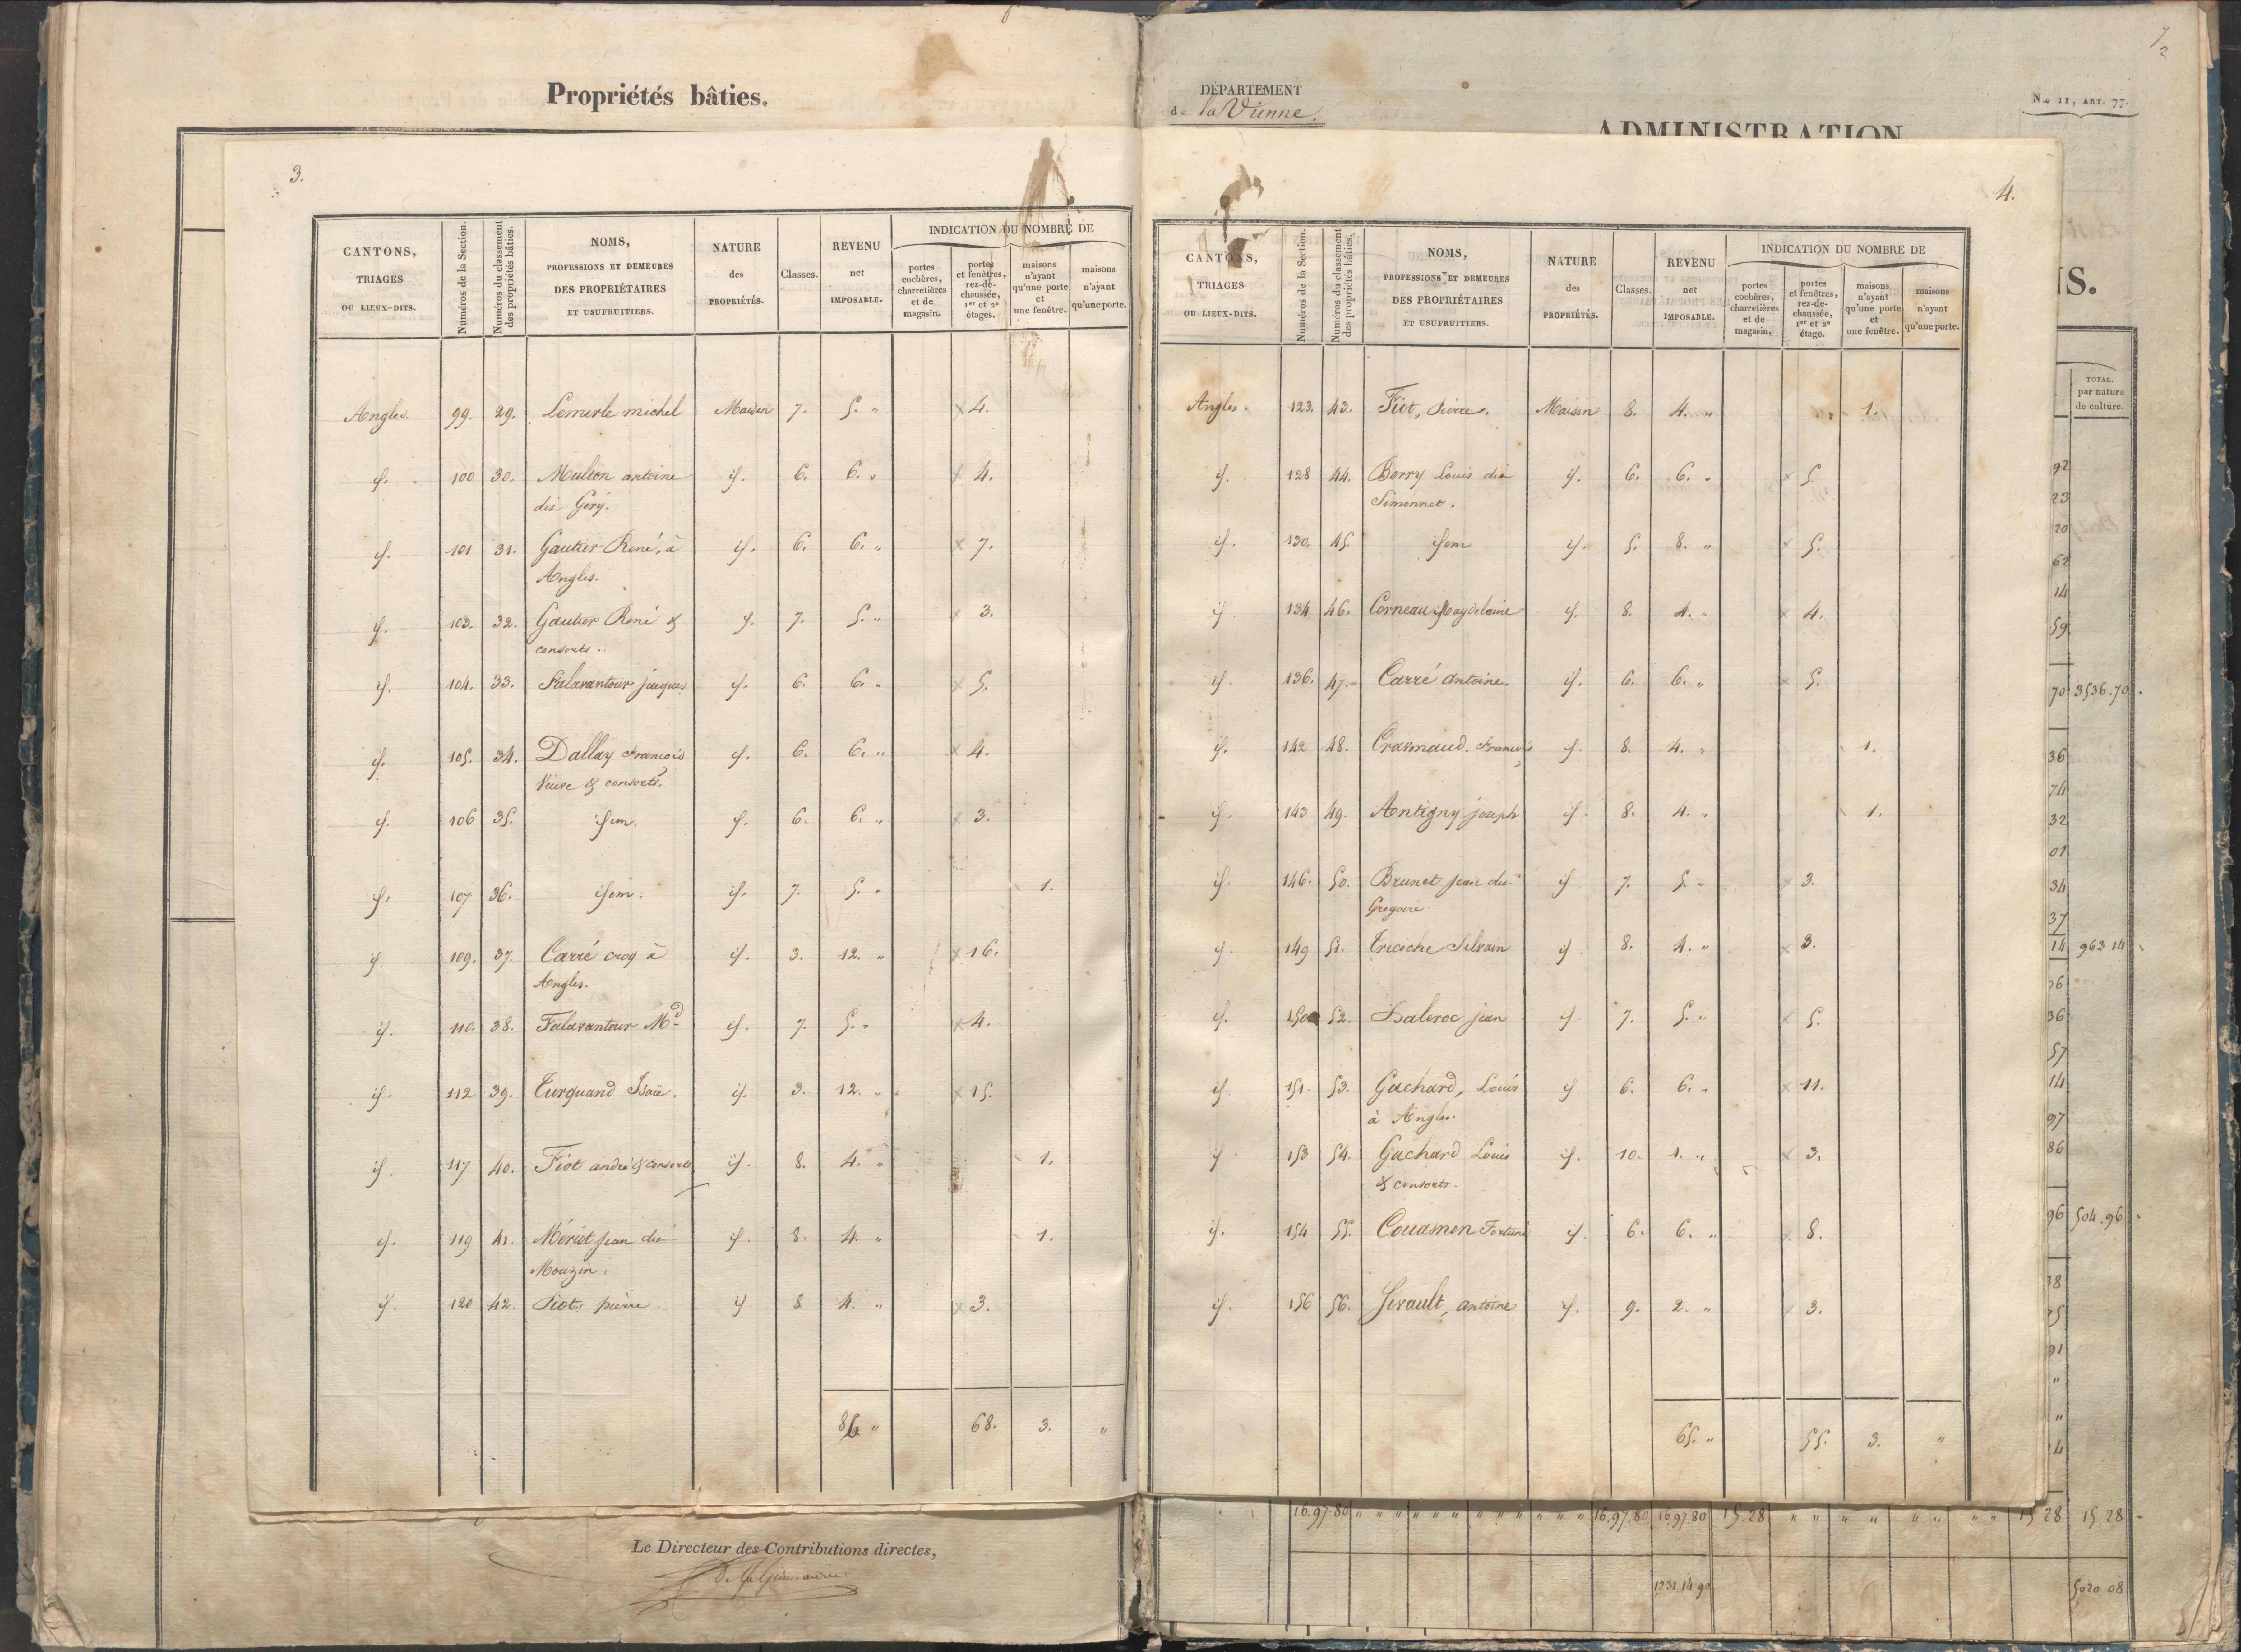 Propriétés bâties.
3.
CANTONS,
TRIAGES
OU LIEUX-DITS.
Numéros de la Section.
Numéros du classement
des propriétés bâties.
NOMS,
PROFESSIONS ET DEMEURES
DES PROPRIÉTAIRES
ET USUFRUITIERS.
NATURE
des
PROPRIÉTÉS.
Classes.
REVENU
net
IMPOSABLE.
INDICATION DU NOMBRE DE
portes
cochères,
charretières
et de
magasin.
portes
et fenêtres,
rez-de-
chaussée,
1er et 2e
étages.
maisons
n'ayant
qu'une porte
et
une fenêtre.
maisons
n'ayant
qu'une porte.
Angles. 99. 29. Lemerle michel Maison 7. 5. " x 4.
id. 100 30. Multon antoine id. 6. 6. " x 4.
dit Géry.
id. 101 31. Gautier René, à id. 6. 6. " x 7.
Angles.
id. 103. 32. Gautier René & id. 7. 5. " x 3.
consorts.
id. 104. 33. Falavantour jacques id. 6. 6. " x 5.
id. 105. 34. Dallay François id. 6. 6. " x 4.
Veuve & consorts.
id. 106 35. idem. id. 6. 6. " x 3.
id. 107 36. idem. id. 7. 5. " 1.
id. 109. 37. Carré à id. 3. 12. " x 16.
Angles.
id. 110. 38. Falavantour Md id. 7. 5. " x 4.
id. 112 39. Turquand Isaïe. id. 3. 12. " x 15.
id. 117 40. Fiot andré & consorts id. 8. 4. " 1.
id. 119 41. Mériot jean dit id. 8. 4. " 1.
Mouzin.
id. 120 42. Fiot, pierre id 8 4. " x 3.
86 " 68. 3. "
Le Directeur des Contributions directes,
DÉPARTEMENT
de la Vienne.
No 11, ART. 77.
ADMINISTRATION
4.
CANTONS,
TRIAGES
OU LIEUX-DITS.
Numéros de la Section.
Numéros du classement
des propriétés bâties.
NOMS,
PROFESSIONS ET DEMEURES
DES PROPRIÉTAIRES
ET USUFRUITIERS.
NATURE
des
PROPRIÉTÉS.
Classes.
REVENU
net
IMPOSABLE.
INDICATION DU NOMBRE DE
portes
cochères,
charretières
et de
magasin.
portes
et fenêtres,
rez-de-
chaussée,
1er et 2e
étage.
maisons
n'ayant
qu'une porte
et
une fenêtre.
maisons
n'ayant
qu'une porte.
Angles. 123. 43. Fiot, Pierre. Maison 8. 4. " 1.
id. 128 44. Berry Louis dit id. 6. 6. " x 5.
Simonnet.
id. 130. 45. idem id. 5. 8. " x 5.
id. 134 46. Corneau Magdelaine id. 8. 4. " x 4.
id. 136. 47. Carré antoine. id. 6. 6. " x 5.
id. 142 48. François id. 8. 4. " 1.
id. 143 49. Antigny joseph id. 8. 4. " 1.
id. 146. 50. Brunet jean dit id 7. 5. " x 3.
Gregoire
id 149 51. Tricoche Silvain id. 8. 4. " x 3.
id. 150 52. Daleroc jean id 7. 5. " x 5.
id. 151. 53. Gachard, Louis id 6. 6. " x 11.
à Angles.
id. 153 54. Gachard Louis id. 10. 1. " x 3.
& consorts.
id. 154 55. Couasnon Fortuné id. 6. 6. " x 8.
id. 156 56. Sirault, antoine id. 9. 2. " x 3.
65. " 55. 3. "
S.
TOTAL.
par nature
de culture.
92
23
20
62
14
59
70 3536.70
36
74
32
01
34
37
14 963 14
36
57
14
97
86
96 504.96
16.97.80 16.97.80 16.97.80 15.28 15 28 15.28
1231.14 90 5020 08